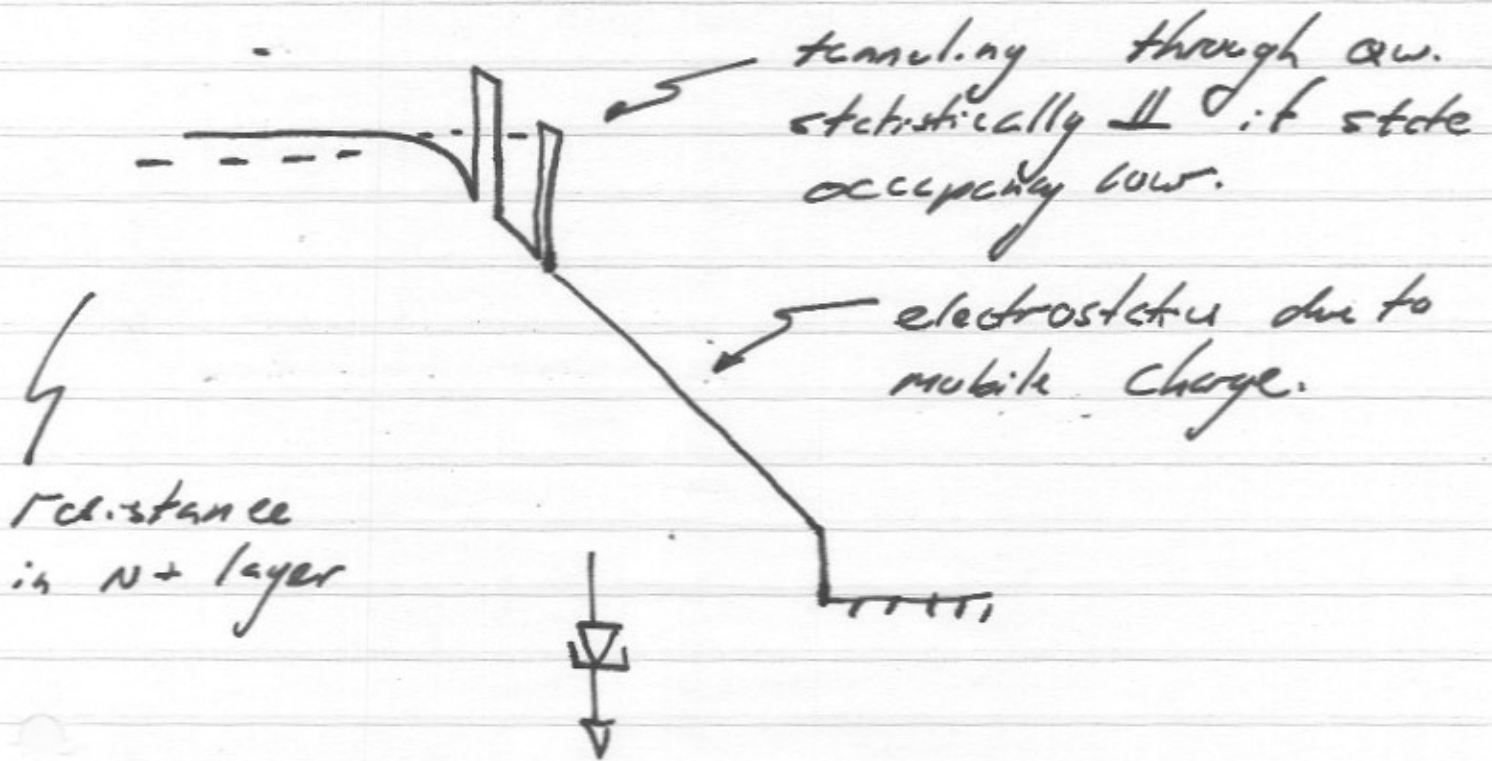 tunneling through QW.
statistically ⫫ if state
occupancy low.
electrostatics due to
mobile charge.
resistance
in N+ layer